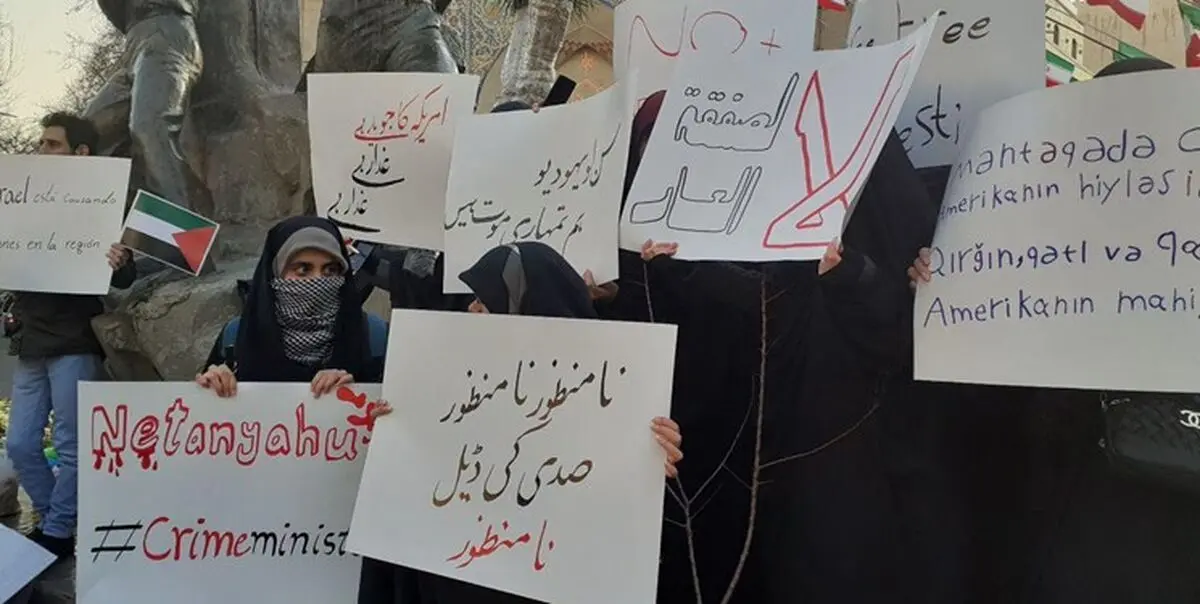 rael está causando
nes en la región
امریکہ کا جو یار ہے
غدار ہے
غدار ہے
سن لو یہودیو
ہم تمہاری موت ہیں
NO +
لا
لصفقة
العار
Free
esti
məhtəqədə
Amerikanın hiyləsi
Qırğın, qətl və qa
Amerikanın mahi
Netanyahu
#Crimeminist
نامنظور نامنظور
صدی کی ڈیل
نامنظور